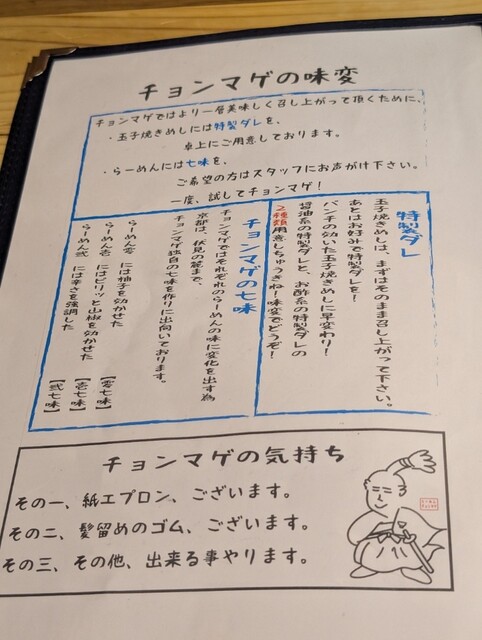 チョンマゲの味変
チョンマゲではより一層美味しく召し上がって頂くために、
・玉子焼きめしには特製ダレを、
卓上にご用意しております。
・らーめんには七味を、
ご希望の方はスタッフにお声がけ下さい。
一度、試してチョンマゲ！
特製ダレ
玉子焼きめしは、まずはそのまま召し上がって下さい。
あとはお好みで特製ダレを！
パンチの効いた玉子焼きめしに早変わり！
醤油系の特製ダレと、お酢系の特製ダレの
2種類用意しちゅうきね！味変でどうぞ！
チョンマゲの七味
チョンマゲではそれぞれのらーめんの味に変化を出す為
京都は、伏見の家まで、
チョンマゲ独自の七味を作りに出向いております。
らーめん零 には柚子を効かせた 【零七味】
らーめん壱 にはピリッと山椒を効かせた 【壱七味】
らーめん弐 には辛さを強調した 【弐七味】
チョンマゲの気持ち
その一、紙エプロン、ございます。
その二、髪留めのゴム、ございます。
その三、その他、出来る事やります。